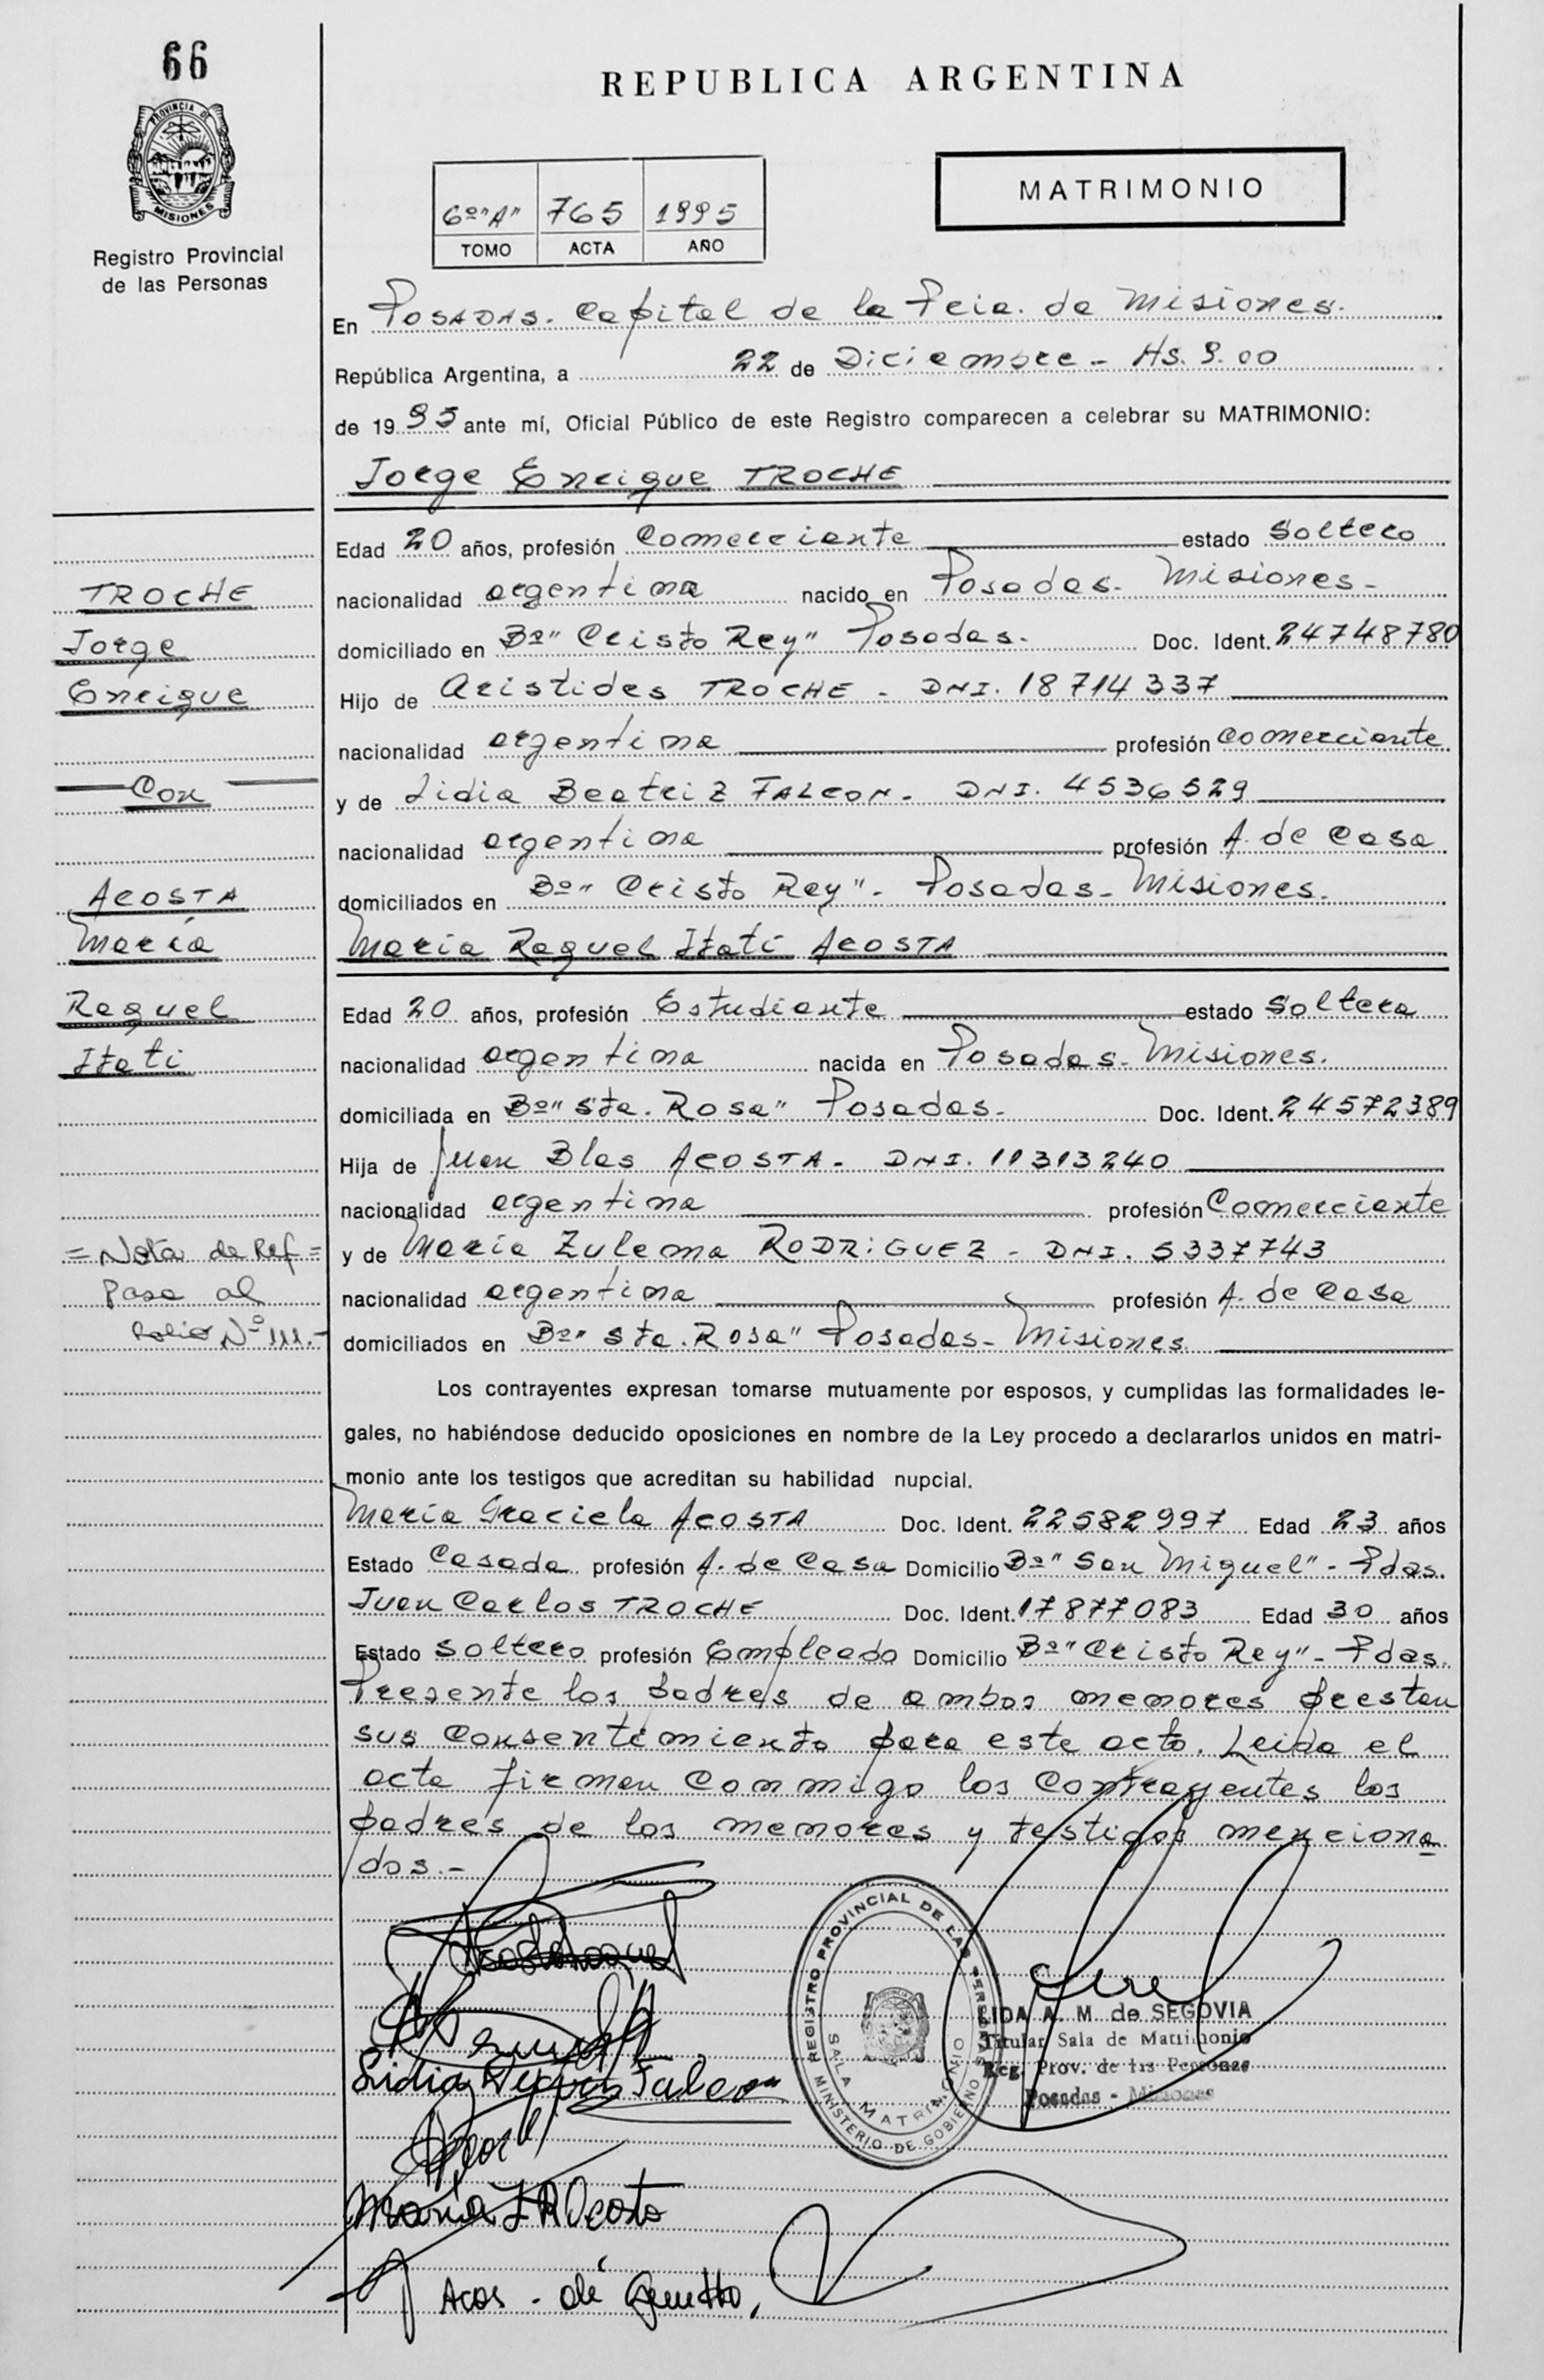 66
PROVINCIA DE
MISIONES
Registro Provincial
de las Personas
REPUBLICA ARGENTINA
6º "A" 765 1995
TOMO ACTA AÑO
MATRIMONIO
En Posadas. Capital de la Pcia. de Misiones.
República Argentina, a 22 de Diciembre - Hs. 9.00
de 1995 ante mí, Oficial Público de este Registro comparecen a celebrar su MATRIMONIO:
Jorge Enrique TROCHE
Edad 20 años, profesión Comerciante estado Soltero
TROCHE
nacionalidad argentina nacido en Posadas - Misiones -
Jorge
domiciliado en Bº "Cristo Rey" Posadas. Doc. Ident. 24748780
Enrique
Hijo de Aristides TROCHE - DNI. 18714337
nacionalidad argentina profesión Comerciante
Con
y de Lidia Beatriz FALCON - DNI. 4536529
nacionalidad argentina profesión A. de Casa
ACOSTA
domiciliados en Bº "Cristo Rey" - Posadas - Misiones.
María
María Raquel Itatí ACOSTA
Raquel
Edad 20 años, profesión Estudiante estado Soltera
Itati
nacionalidad argentina nacida en Posadas - Misiones.
domiciliada en Bº "Sta. Rosa" Posadas - Doc. Ident. 24572389
Hija de Juan Blas ACOSTA - DNI. 11313240
nacionalidad argentina profesión Comerciante
= Nota de Ref =
y de María Zulema RODRIGUEZ - DNI. 5337743
Pasa al
nacionalidad argentina profesión A. de Casa
folio Nº 111.-
domiciliados en Bº "Sta. Rosa" Posadas - Misiones
Los contrayentes expresan tomarse mutuamente por esposos, y cumplidas las formalidades le-
gales, no habiéndose deducido oposiciones en nombre de la Ley procedo a declararlos unidos en matri-
monio ante los testigos que acreditan su habilidad nupcial.
María Graciela ACOSTA Doc. Ident. 22582997 Edad 23 años
Estado Casada profesión A. de Casa Domicilio Bº "San Miguel" - Pdas.
Juan Carlos TROCHE Doc. Ident. 17877083 Edad 30 años
Estado Soltero profesión Empleado Domicilio Bº "Cristo Rey" - Pdas.
Presente los padres de ambos menores prestan
sus consentimiento para este acto. Leida el
acta firman conmigo los contrayentes los
padres de los menores y testigos menciona
dos.-
REGISTRO PROVINCIAL DE LAS PERSONAS
SALA MATRIMONIO
MINISTERIO DE GOBIERNO
LIDA A. M. de SEGOVIA
Titular Sala de Matrimonio
Reg. Prov. de las Personas
Posadas - Misiones
Lidia Falcon
María Acosta